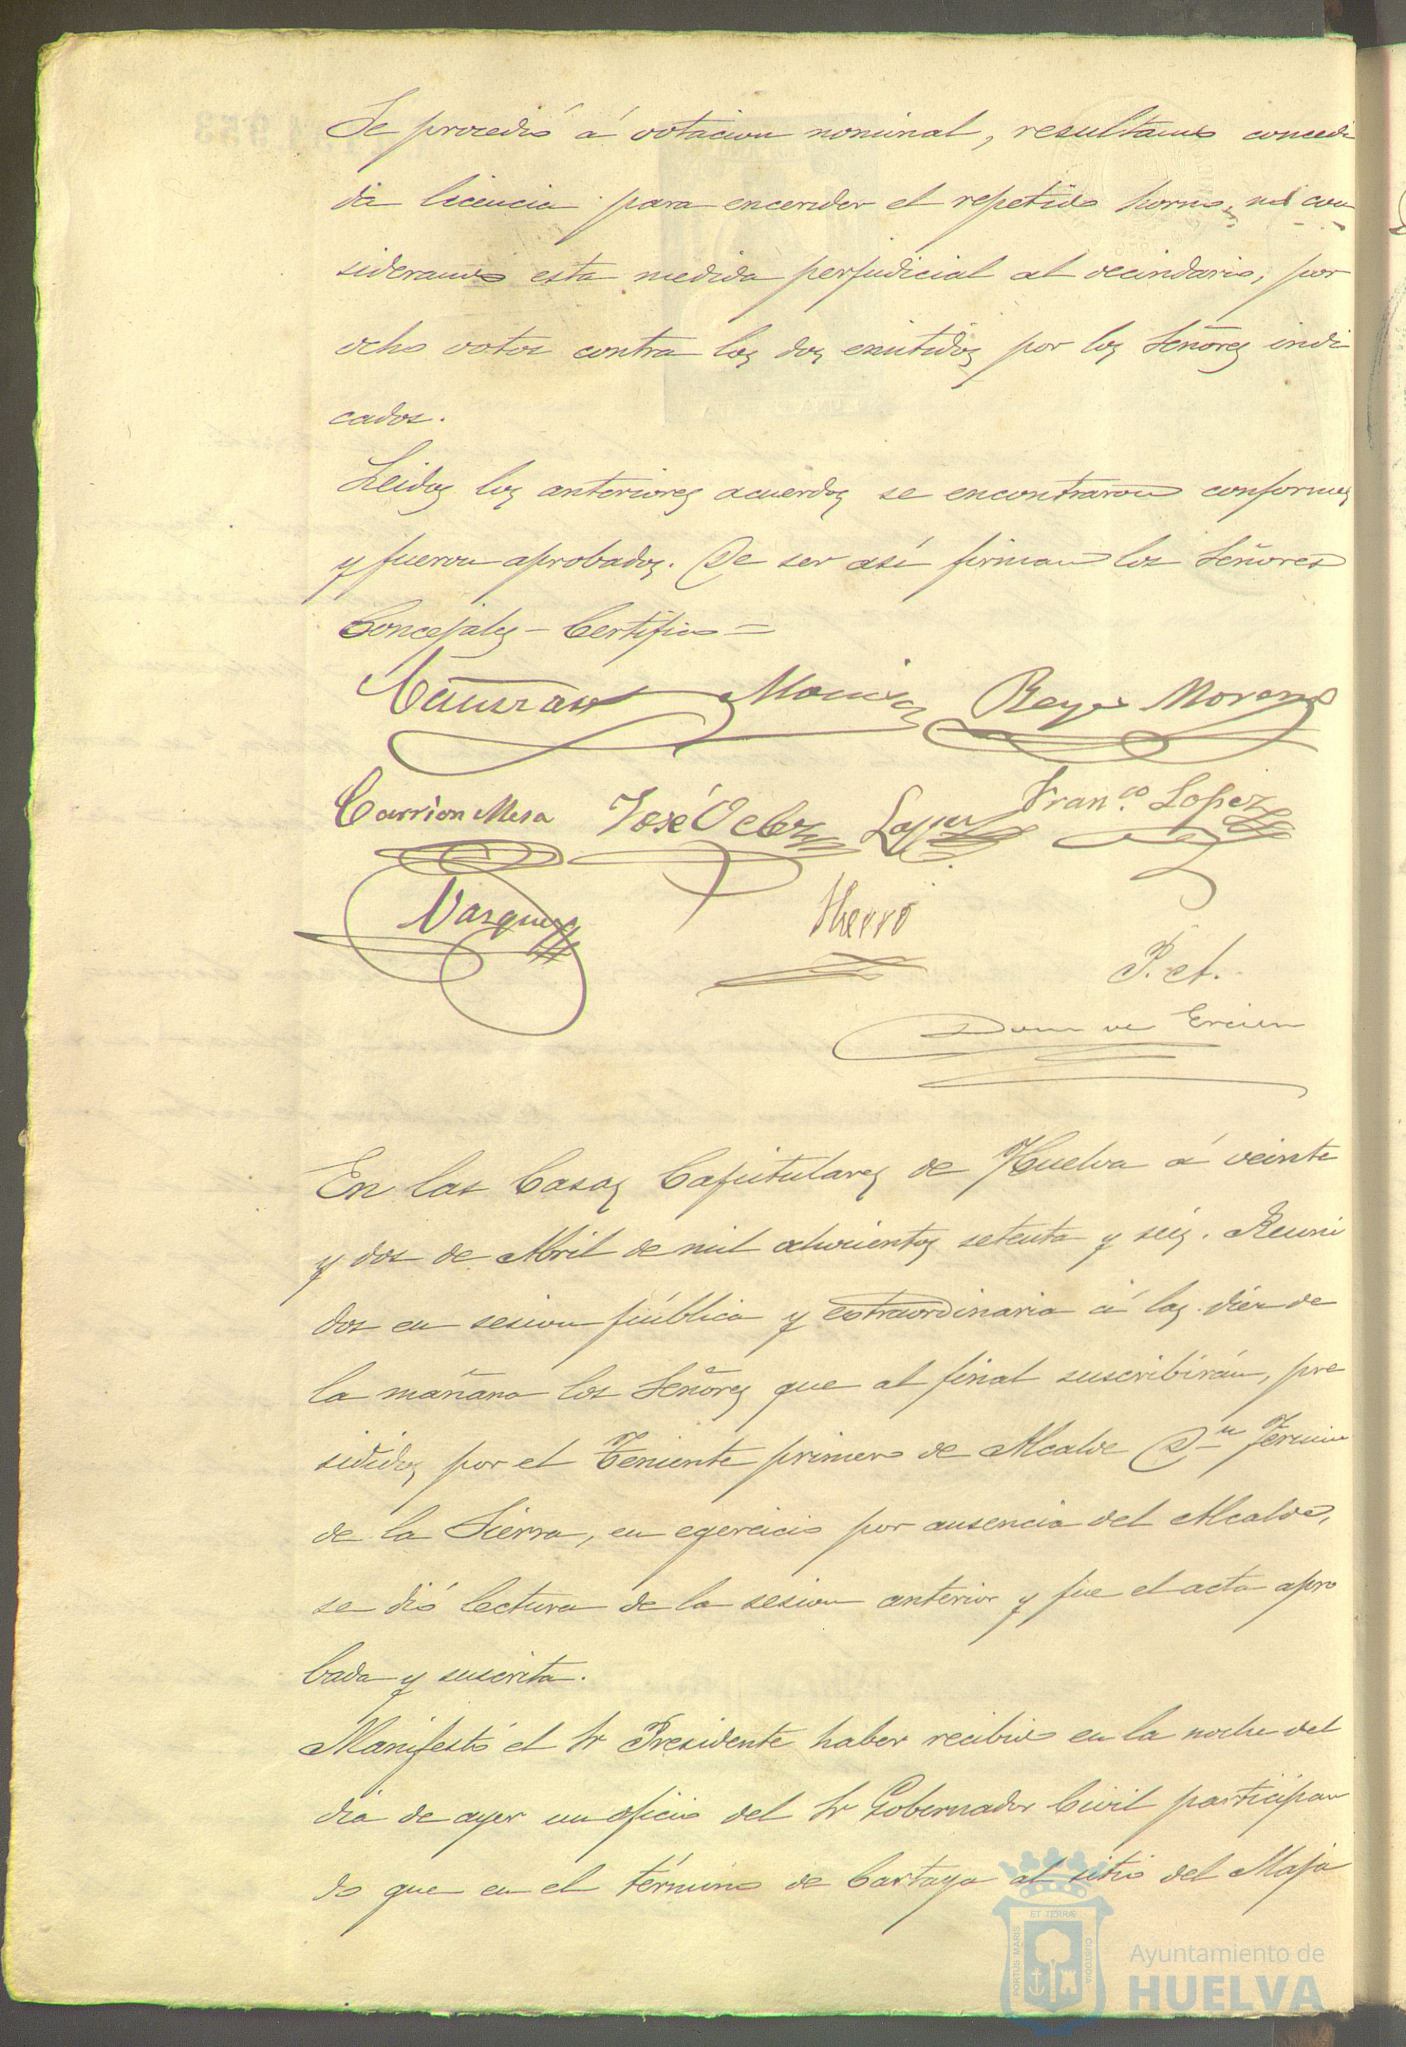 Se procedió á votacion nominal, resultando concedi
da licencia para encender el repetido horno, no con
siderando esta medida perjudicial al vecindario, por
ocho votos contra los dos emitidos por los Señores indi
cados.
Leidos los anteriores acuerdos se encontraron conformes
y fueron aprobados. De ser así firman los Señores
Concejales – Certifico =
Reyes Moreno
Carrion Mesa José Velez Lopez Fran.co Lopez
Vazquez
Hierro
P. A.
En las Casas Capitulares de Huelva á veinte
y dos de Abril de mil ochocientos setenta y seis. Reuni
dos en sesion pública y extraordinaria á las diez de
la mañana los Señores que al final suscribirán, pre
sididos por el Teniente primero de Alcalde Dn
de la Sierra, en egercicio por ausencia del Alcalde,
se dió lectura de la sesion anterior y fue el acta apro
bada y suscrita.
Manifestó el Sr Presidente haber recibido en la noche del
dia de ayer un oficio del Sr Gobernador Civil participan
do que en el término de Cartaya al sitio del Maja
PORTUS MARIS
ET TERRÆ
CUSTODIA
Ayuntamiento de
HUELVA